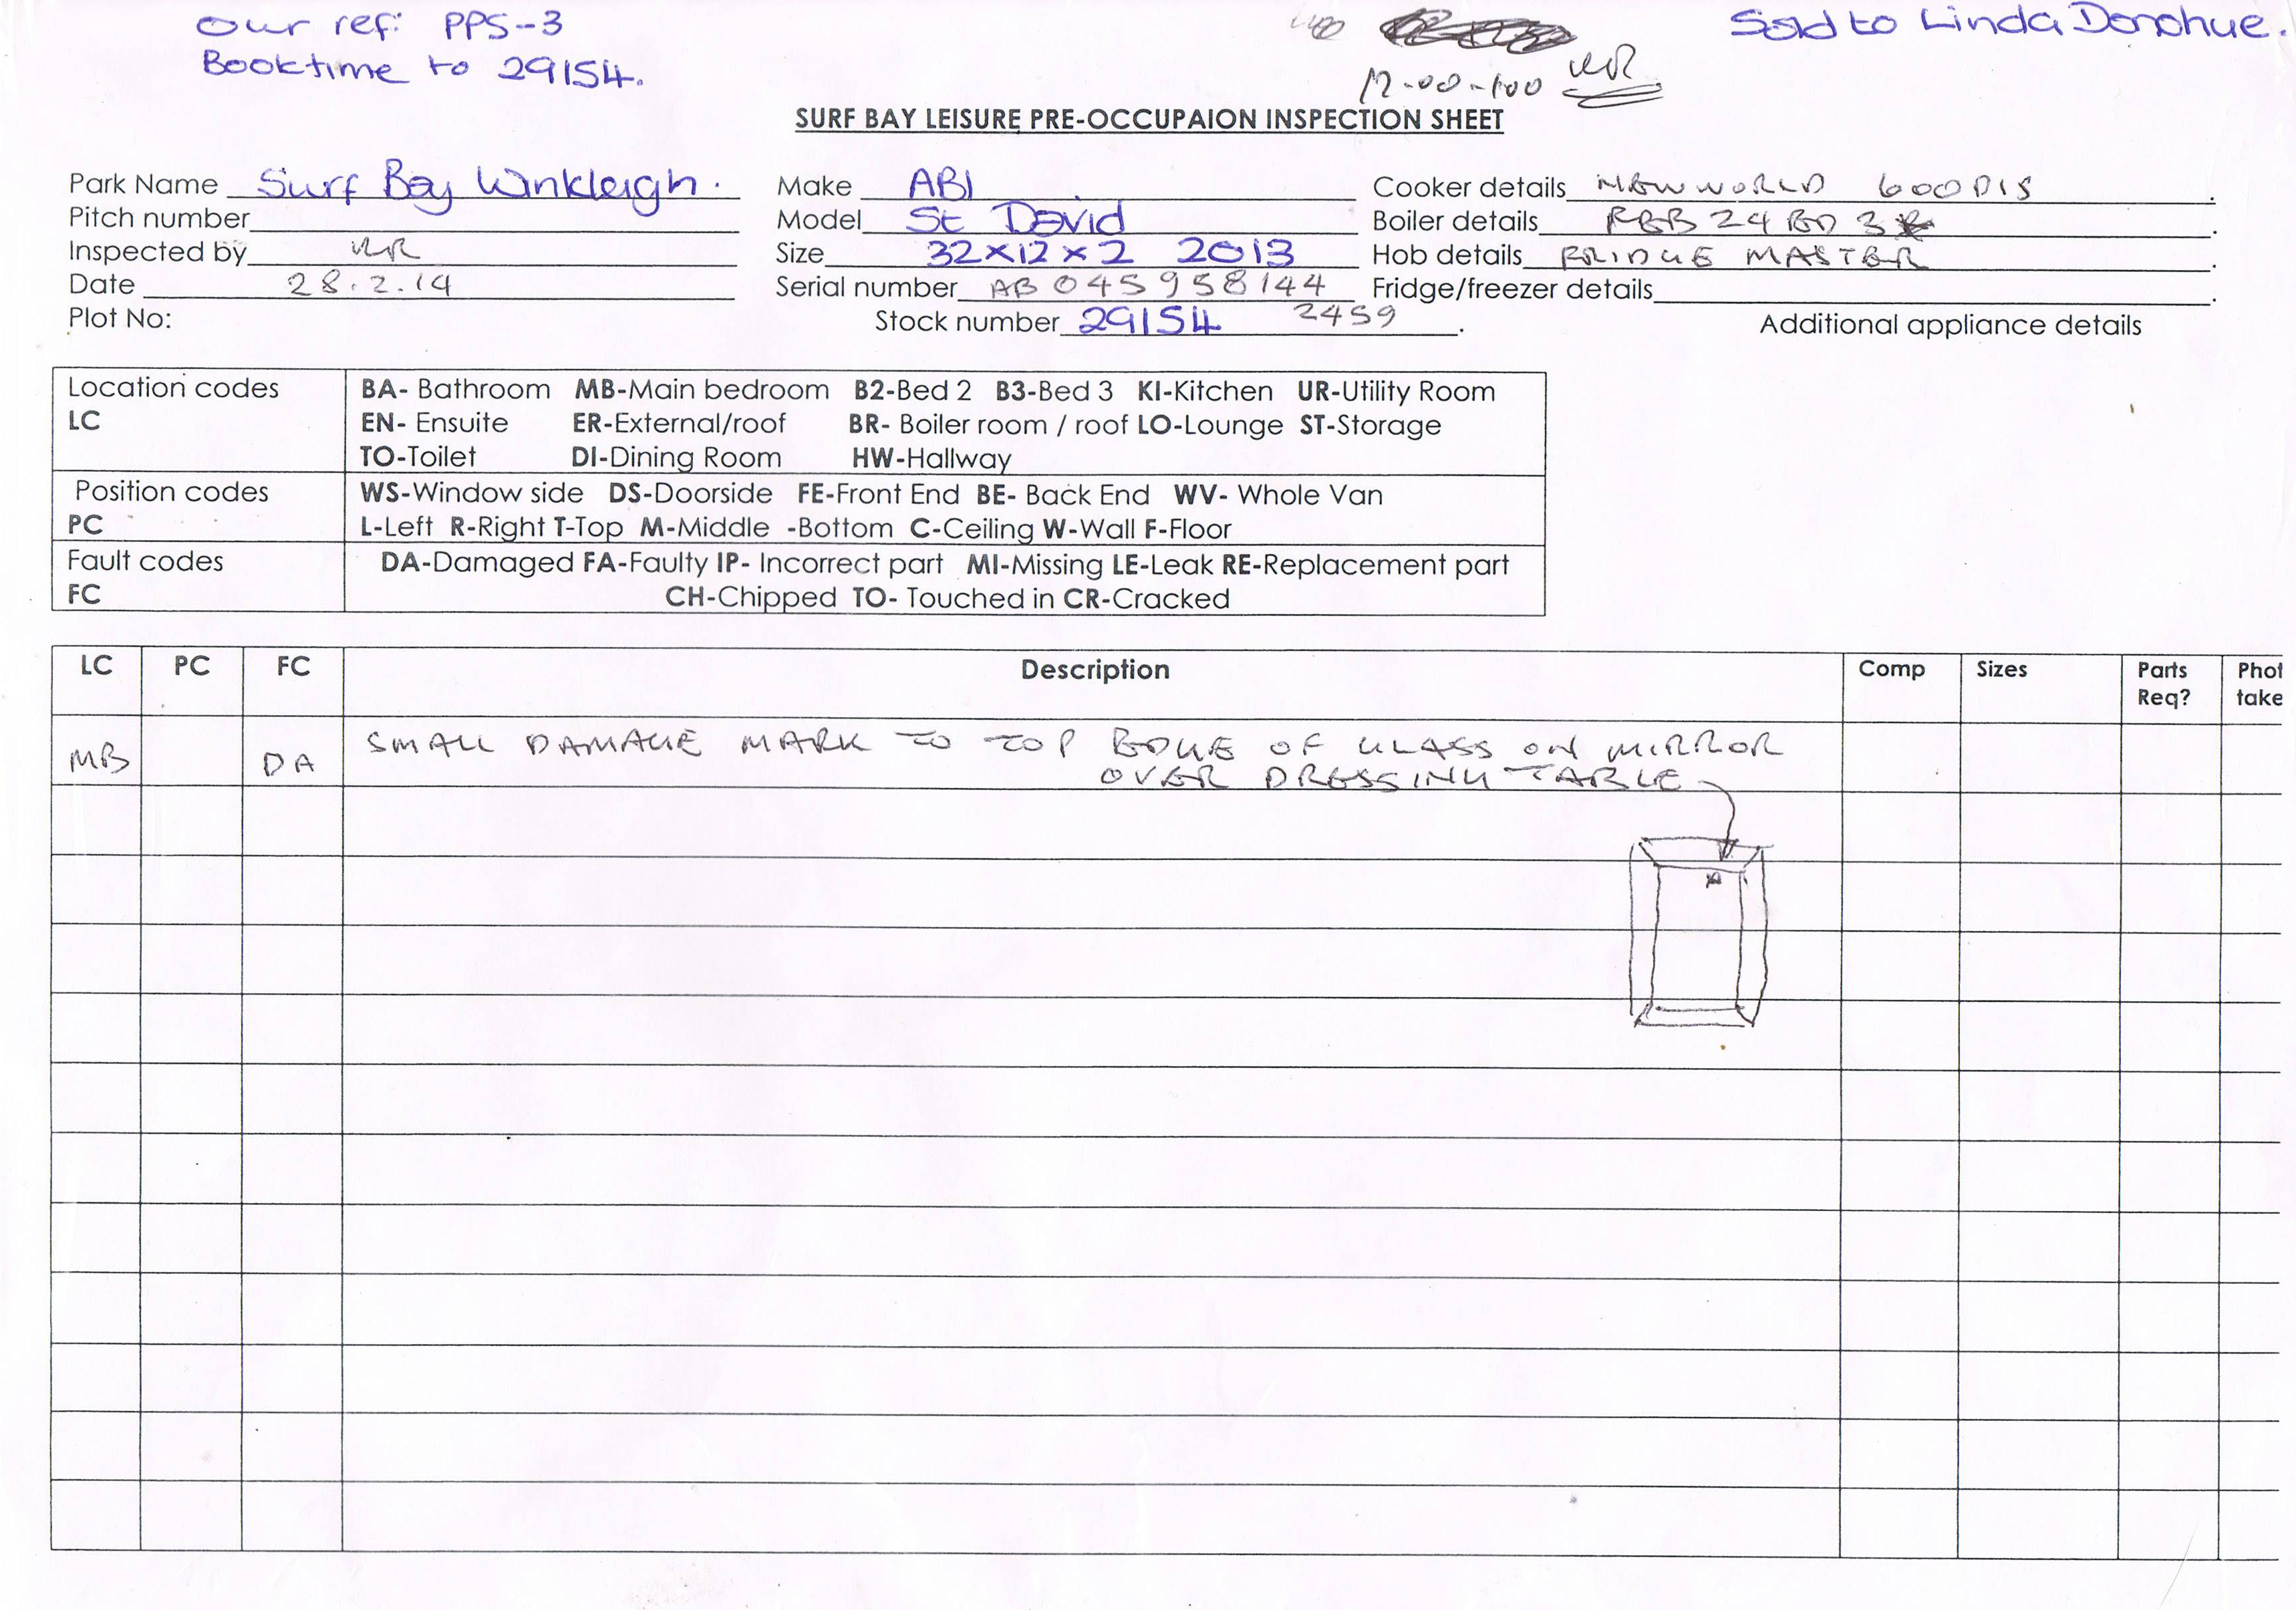 Our ref: PPS-3
Sold to Linda Donohue.
Book time to 29154.
12-00-1-00
SURF BAY LEISURE PRE-OCCUPAION INSPECTION SHEET
Park Name Surf Bay Winkleigh.
Make ABI
Cooker details NEW WORLD 600DIS
Pitch number
Model St David
Boiler details RGB 24 BD 3
Inspected by
Size 32x12x2 2013
Hob details BRIDGE MASTER
Date 28.2.14
Serial number AB 045958144
Fridge/freezer details
Plot No:
Stock number 29154 2459
Additional appliance details
Location codes
LC
BA- Bathroom MB-Main bedroom B2-Bed 2 B3-Bed 3 KI-Kitchen UR-Utility Room
EN- Ensuite ER-External/roof BR- Boiler room / roof LO-Lounge ST-Storage
TO-Toilet DI-Dining Room HW-Hallway
Position codes
PC
WS-Window side DS-Doorside FE-Front End BE- Back End WV- Whole Van
L-Left R-Right T-Top M-Middle -Bottom C-Ceiling W-Wall F-Floor
Fault codes
FC
DA-Damaged FA-Faulty IP- Incorrect part MI-Missing LE-Leak RE-Replacement part
CH-Chipped TO- Touched in CR-Cracked
LC PC FC Description Comp Sizes Parts Req? Phot take
MB DA SMALL DAMAGE MARK TO TOP EDGE OF GLASS ON MIRROR
OVER DRESSING TABLE